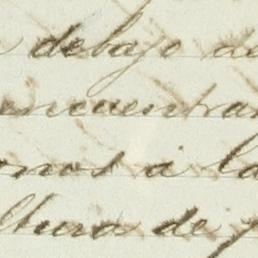 debajo de
encuentran
onos a la
ltura de